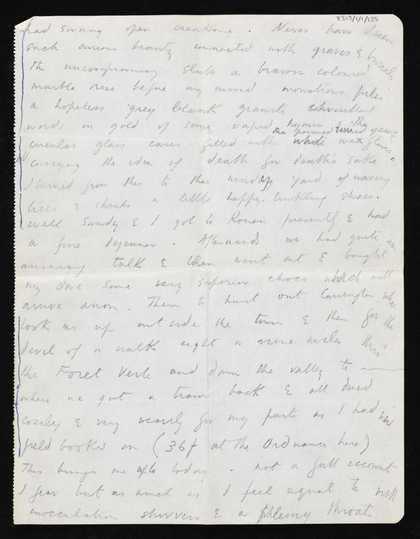 had swung open creaking. Never have I seen
such curious beauty connected with graves & burials
The uncompromising slab a brawn coloured
marble rose before my mind monstrous perhaps
a hopeless grey blank granite,
words in gold of some vapid hymn & they
circular glass cases filled with white wax flowers
carrying the idea of death for death's sake
I turned from this to the windy yard of waving
trees & thanks a little happy
well Sandy & I got to Rouen presently & had
a fine dejeuner. Afterwards we had quite an
amusing talk & then went out & bought
my dove some very superior chocs which will
arrive anon. Then to hunt out Carrington who
took us up outside the town & then for the
devil of a walk eight or nine miles thro'
the Foret Verte and down the valley to ——
where we got a tram back & all dined
cosily & very warily for my part as I had
field booked on (36f at the Ordnance here)
This brings me up to today. not a full account
I fear but as much as I feel equal to with
inoculation shivers & a phlemy throat